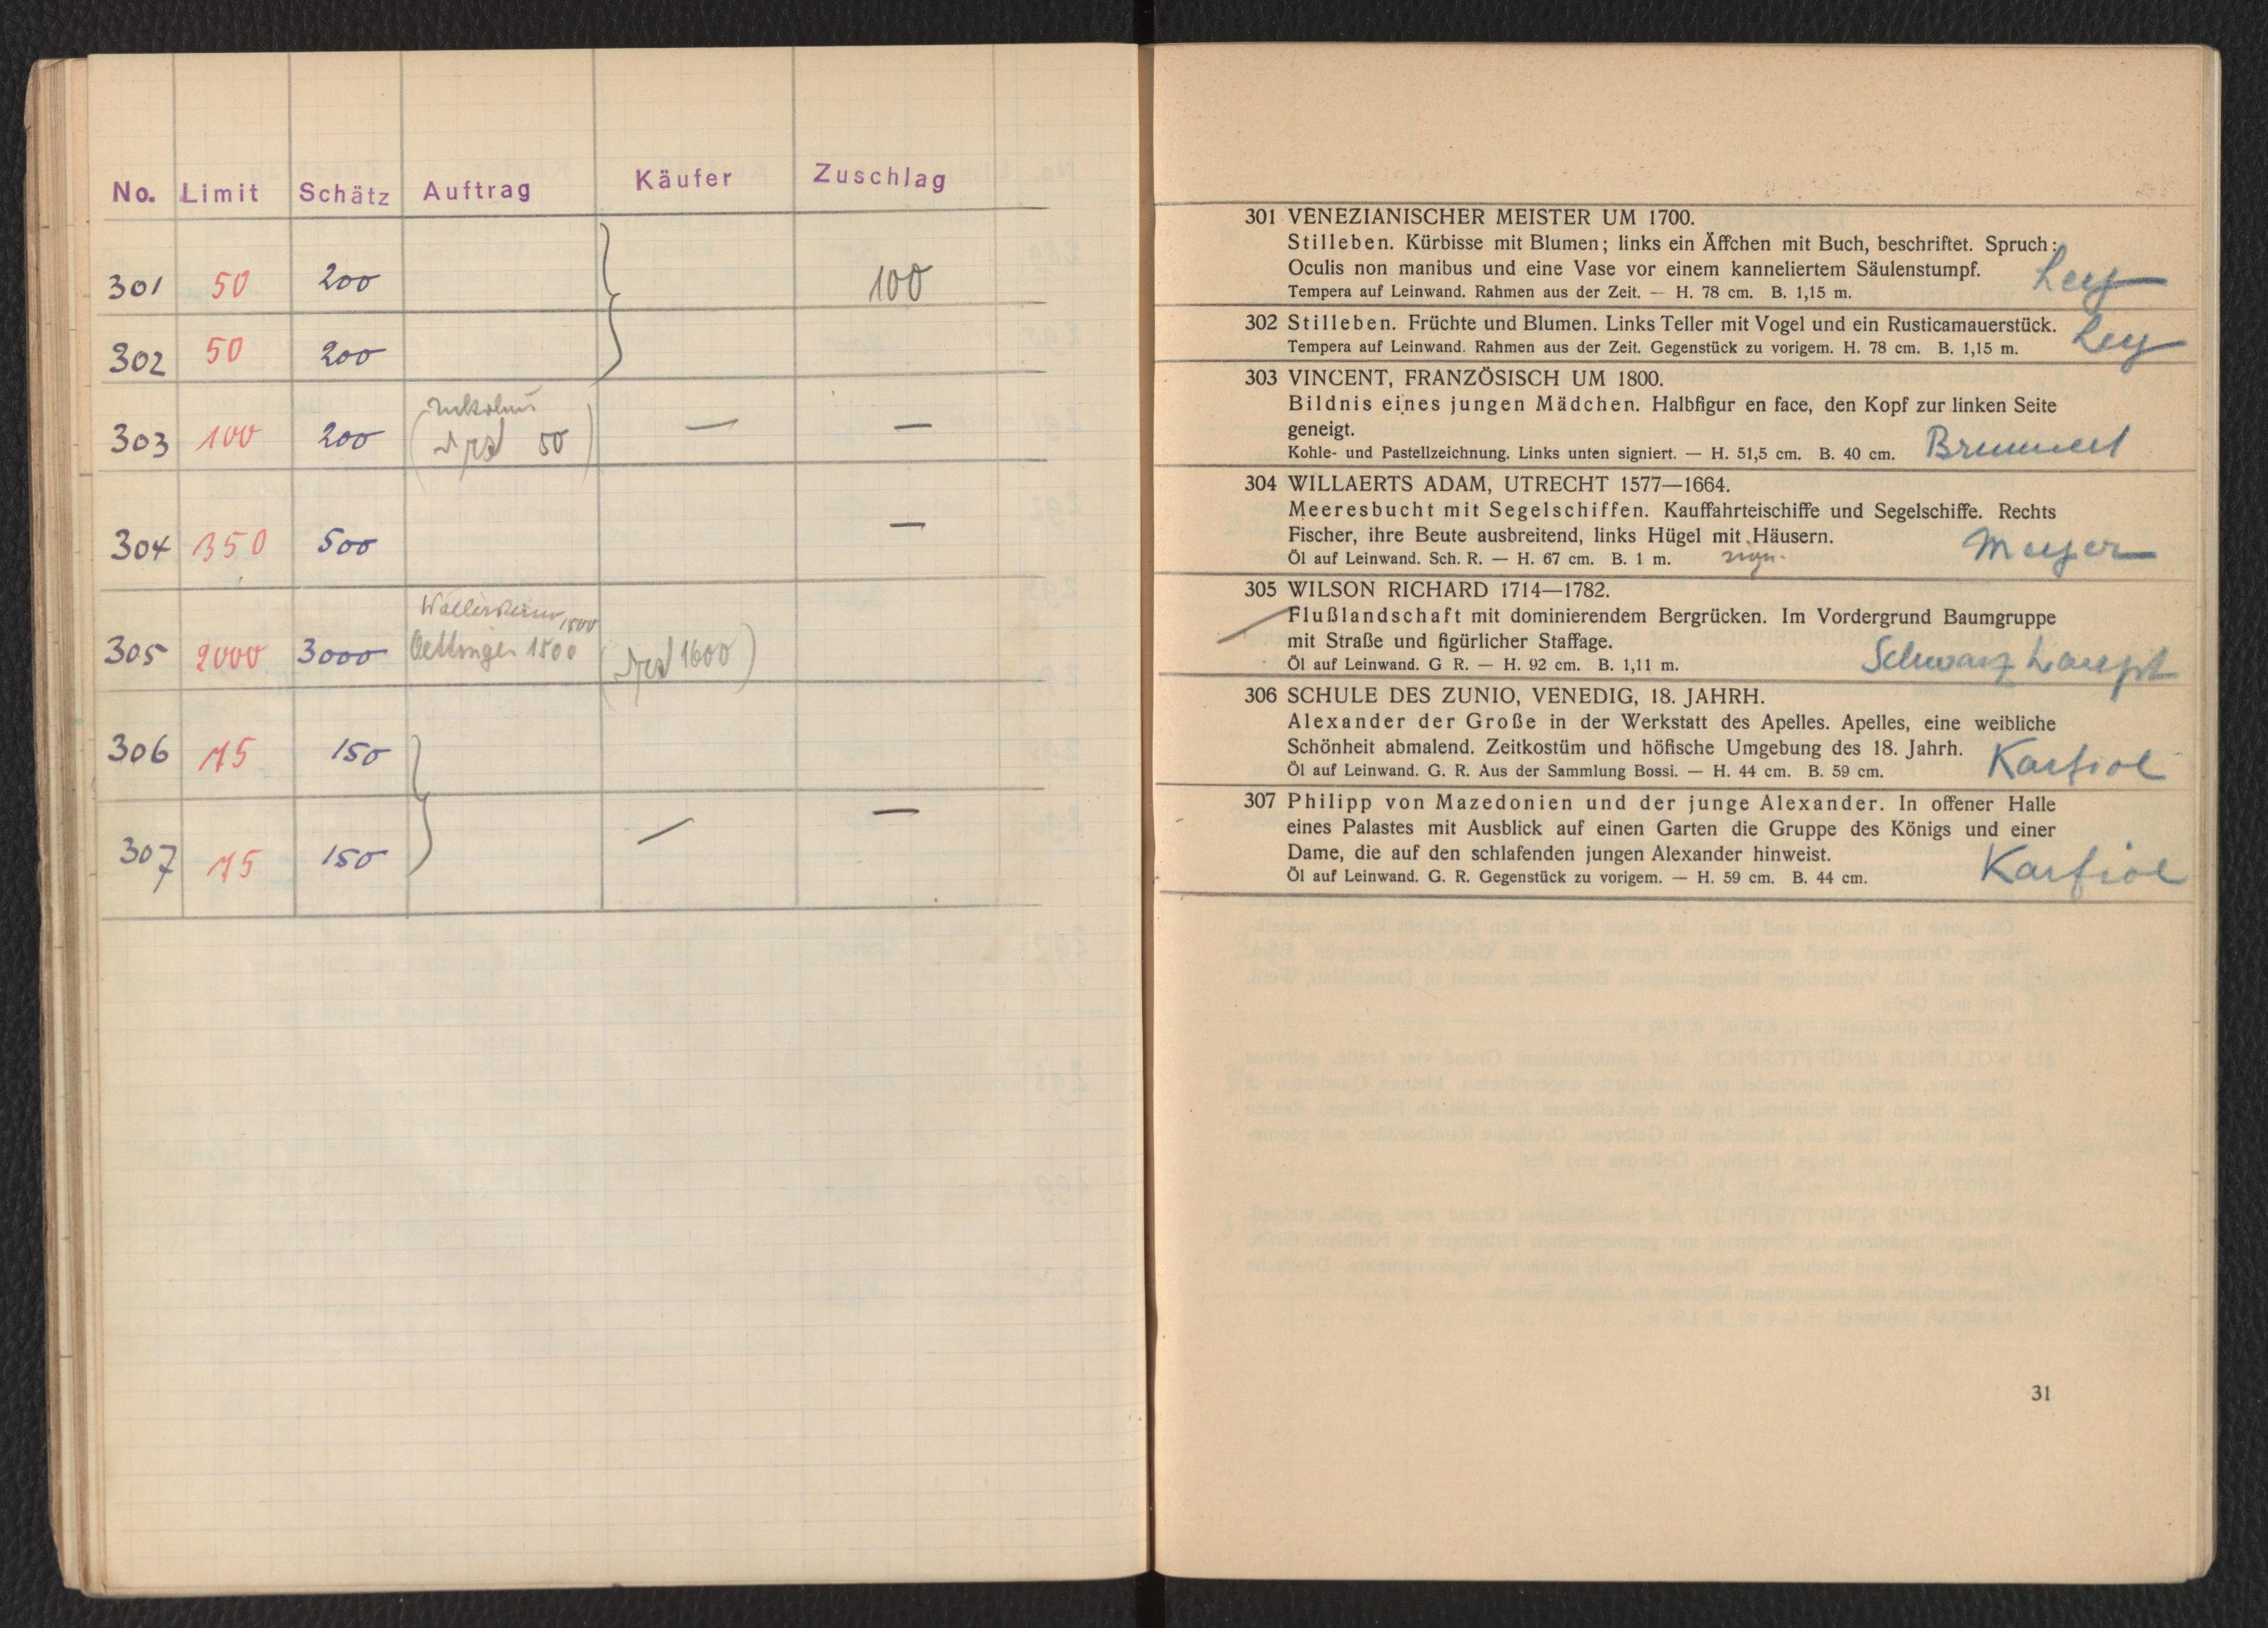 No. Limit Schätz Auftrag Käufer Zuschlag
301 50 200 100
302 50 200
303 100 200 ( 50 ) — —
304 350 500 —
Wallerstein 1500
305 2000 3000 Oettingen 1500 ( 1600 )
306 75 150
307 75 150 — —
301 VENEZIANISCHER MEISTER UM 1700.
Stilleben. Kürbisse mit Blumen; links ein Äffchen mit Buch, beschriftet. Spruch:
Oculis non manibus und eine Vase vor einem kanneliertem Säulenstumpf. Ley
Tempera auf Leinwand. Rahmen aus der Zeit. — H. 78 cm. B. 1,15 m.
302 Stilleben. Früchte und Blumen. Links Teller mit Vogel und ein Rusticamauerstück. Ley
Tempera auf Leinwand. Rahmen aus der Zeit. Gegenstück zu vorigem. H. 78 cm. B. 1,15 m.
303 VINCENT, FRANZÖSISCH UM 1800.
Bildnis eines jungen Mädchen. Halbfigur en face, den Kopf zur linken Seite
geneigt.
Kohle- und Pastellzeichnung. Links unten signiert. — H. 51,5 cm. B. 40 cm.
304 WILLAERTS ADAM, UTRECHT 1577—1664.
Meeresbucht mit Segelschiffen. Kauffahrteischiffe und Segelschiffe. Rechts
Fischer, ihre Beute ausbreitend, links Hügel mit Häusern. Meyer
Öl auf Leinwand. Sch. R. — H. 67 cm. B. 1 m. sign.
305 WILSON RICHARD 1714—1782.
Flußlandschaft mit dominierendem Bergrücken. Im Vordergrund Baumgruppe
mit Straße und figürlicher Staffage. Schwarzhaupt
Öl auf Leinwand. G R. — H. 92 cm. B. 1,11 m.
306 SCHULE DES ZUNIO, VENEDIG, 18. JAHRH.
Alexander der Große in der Werkstatt des Apelles. Apelles, eine weibliche
Schönheit abmalend. Zeitkostüm und höfische Umgebung des 18. Jahrh. Karfiol
Öl auf Leinwand. G. R. Aus der Sammlung Bossi. — H. 44 cm. B. 59 cm.
307 Philipp von Mazedonien und der junge Alexander. In offener Halle
eines Palastes mit Ausblick auf einen Garten die Gruppe des Königs und einer
Dame, die auf den schlafenden jungen Alexander hinweist. Karfiol
Öl auf Leinwand. G. R. Gegenstück zu vorigem. — H. 59 cm. B. 44 cm.
31